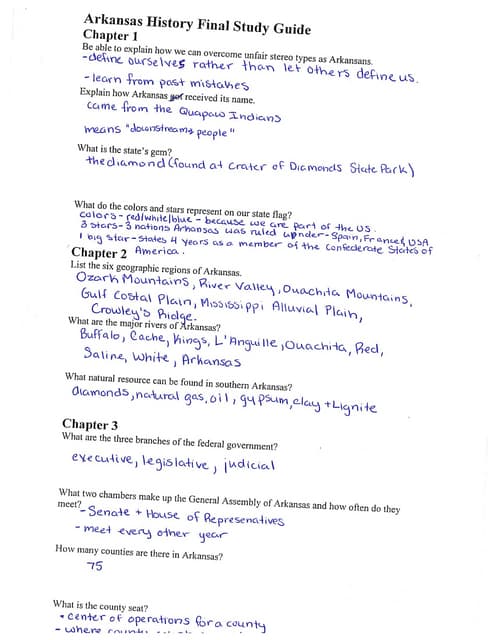 Arkansas History Final Study Guide
Chapter 1
Be able to explain how we can overcome unfair stereo types as Arkansans.
-define ourselves rather than let others define us.
-learn from past mistakes
Explain how Arkansas got received its name.
came from the Quapaw Indians
means "downstreams people"
What is the state's gem?
the diamond (found at Crater of Diamonds State Park)
What do the colors and stars represent on our state flag?
colors - red/white/blue - because we are part of the US.
3 stars- 3 nations Arkansas was ruled under- Spain, France, USA
1 big star - states 4 years as a member of the Confederate States of
America.
Chapter 2
List the six geographic regions of Arkansas.
Ozark Mountains, River Valley, Ouachita Mountains,
Gulf Costal Plain, Mississippi Alluvial Plain,
Crowley's Ridge.
What are the major rivers of Arkansas?
Buffalo, Cache, Kings, L'Anguille, Ouachita, Red,
Saline, White, Arkansas
What natural resource can be found in southern Arkansas?
diamonds, natural gas, oil, gypsum, clay + Lignite
Chapter 3
What are the three branches of the federal government?
executive, legislative, judicial
What two chambers make up the General Assembly of Arkansas and how often do they
meet?
- Senate + House of Represenatives
- meet every other year
How many counties are there in Arkansas?
75
What is the county seat?
• center of operations for a county
- where